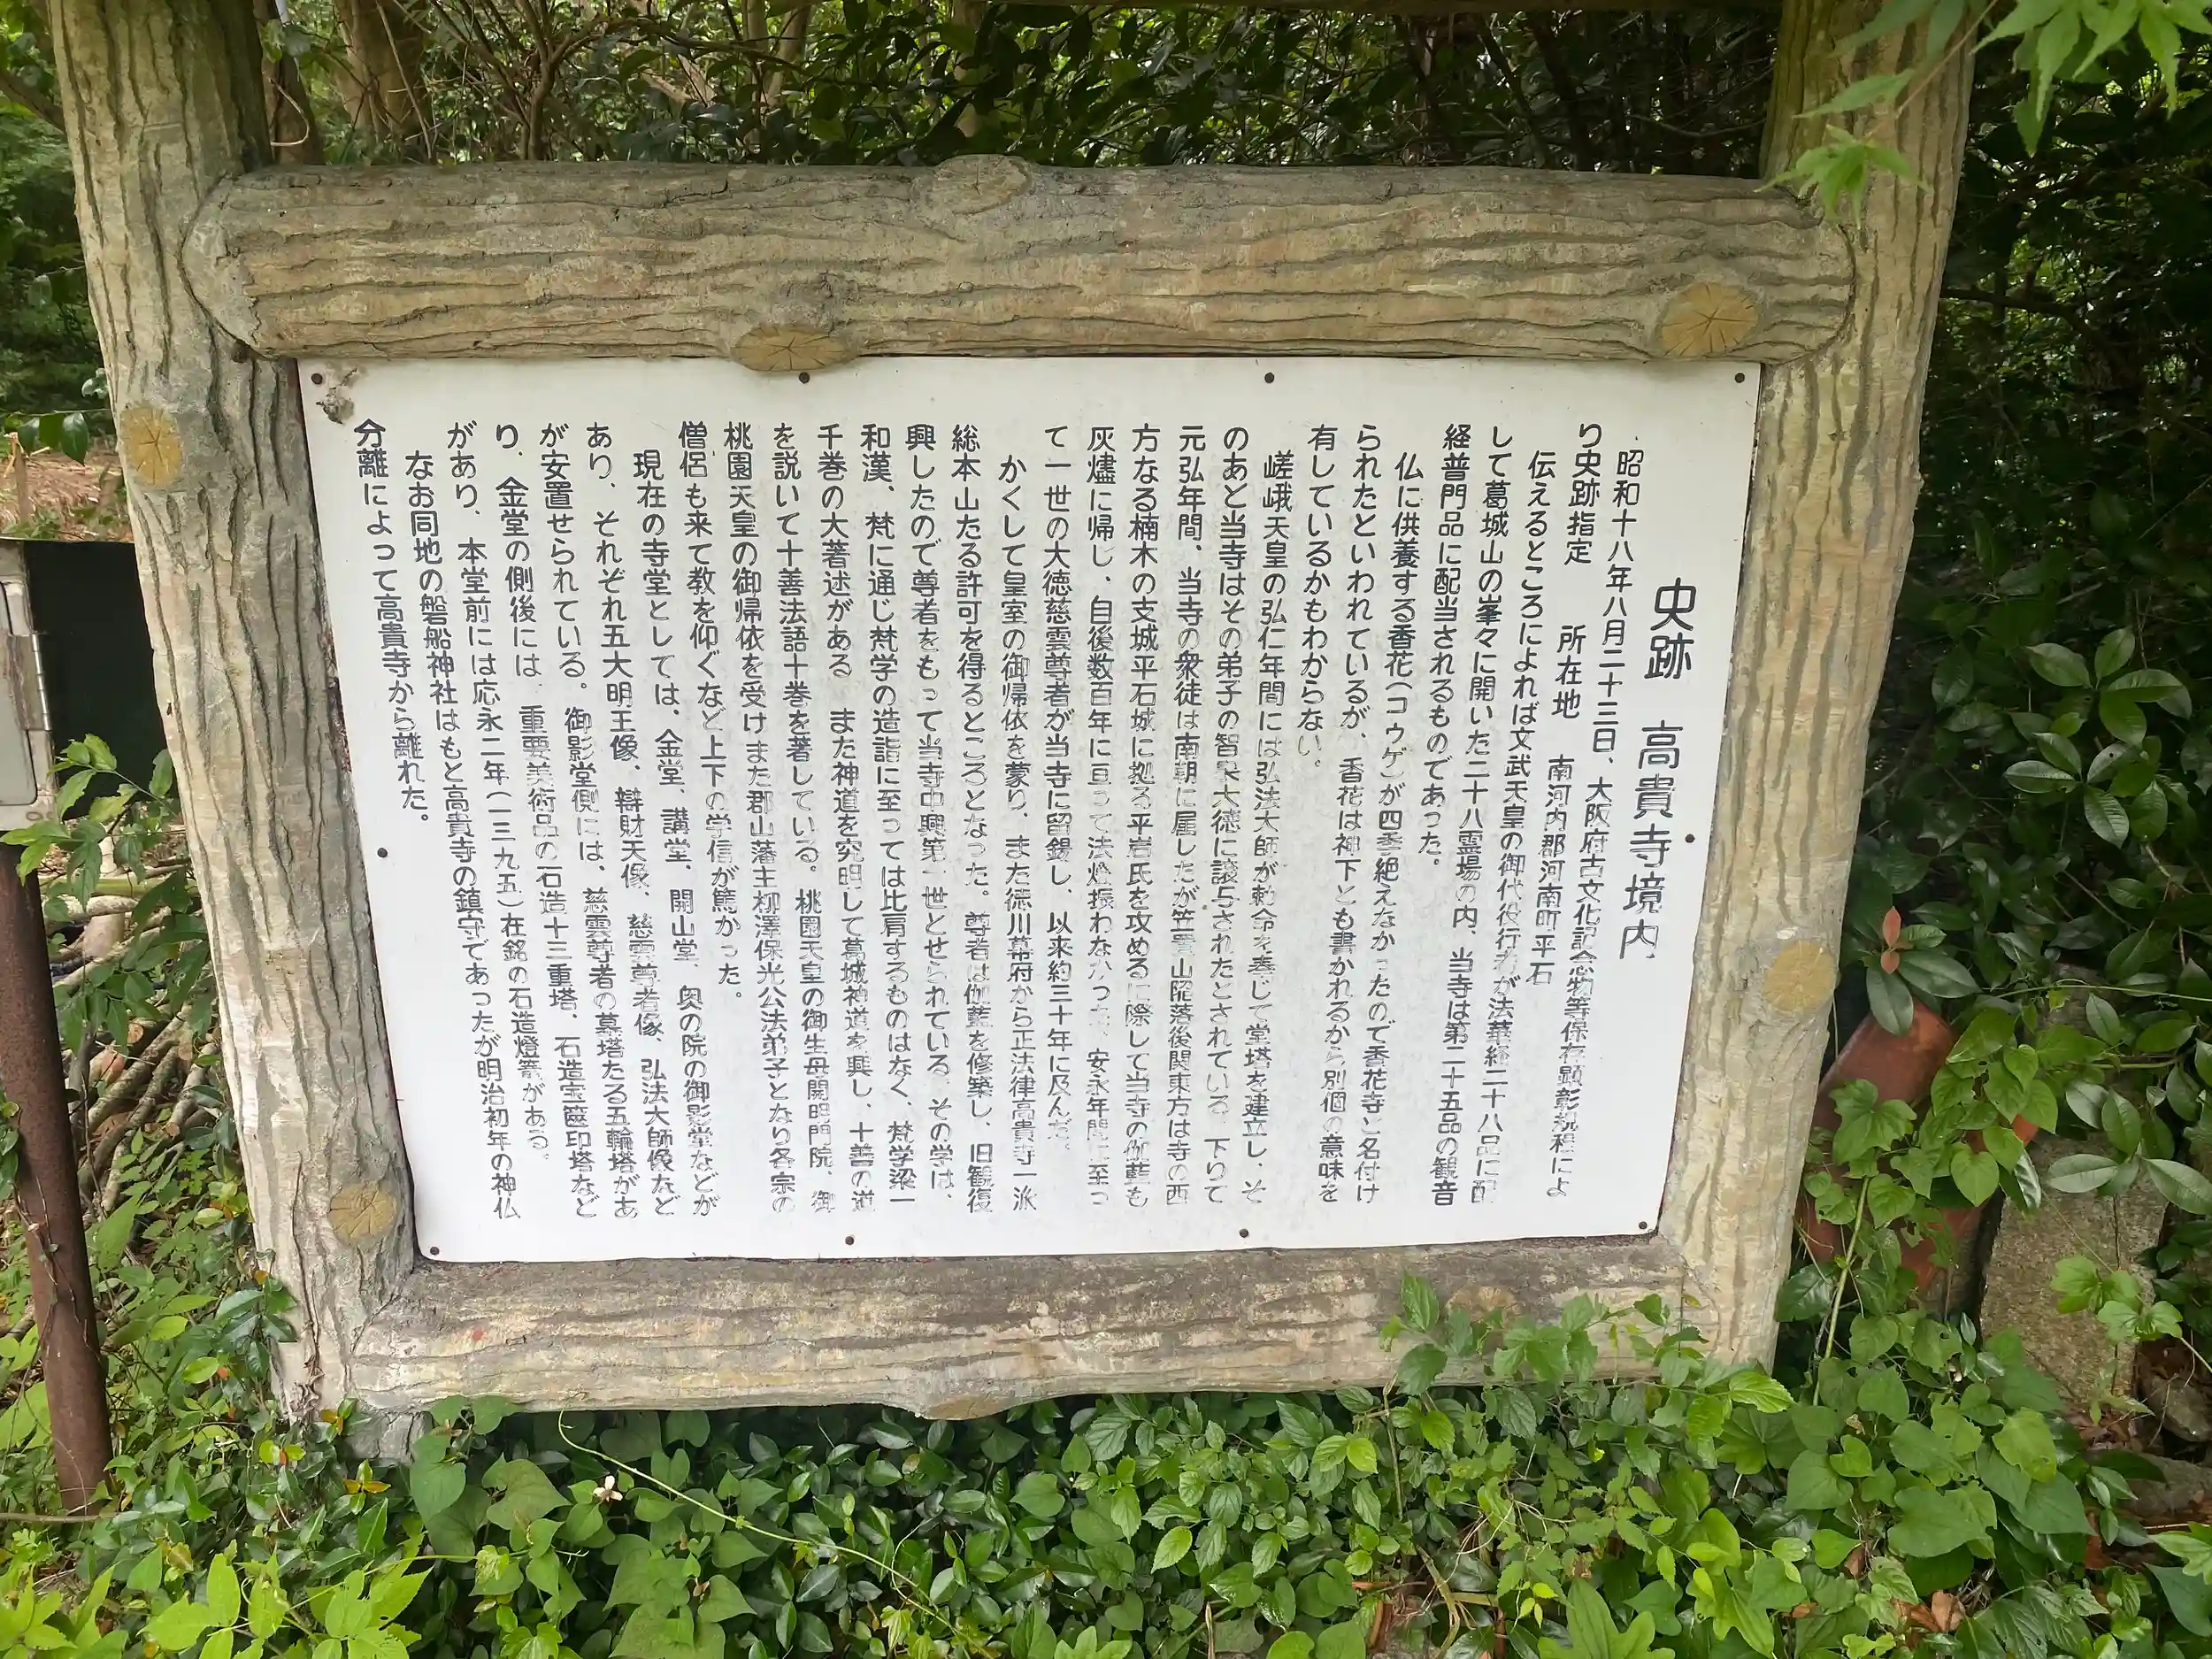 史跡　高貴寺境内
昭和十八年八月二十三日、大阪府古文化記念物等保存顕彰規程によ
り史跡指定　所在地　南河内郡河南町平石
伝えるところによれば文武天皇の御代役行者が法華経二十八品に配
して葛城山の峯々に開いた二十八霊場の内、当寺は第二十五品の観音
経普門品に配当されるものであった。
仏に供養する香花(コウゲ)が四季絶えなかったので香花寺と名付け
られたといわれているが、香花は神下とも書かれるから別個の意味を
有しているかもわからない。
嵯峨天皇の弘仁年間には弘法大師が勅命を奉じて堂塔を建立し、そ
のあと当寺はその弟子の智泉大徳に譲与されたとされている。下りて
元弘年間、当寺の衆徒は南朝に属したが笠置山陥落後関東方は寺の西
方なる楠木の支城平石城に拠る平岩氏を攻めるに際して当寺の伽藍も
灰燼に帰し、自後数百年に亘って法燈振わなかった、安永年間に至っ
て一世の大徳慈雲尊者が当寺に留錫し、以来約三十年に及んだ。
かくして皇室の御帰依を蒙り、また徳川幕府から正法律高貴寺一派
総本山たる許可を得るところとなった。尊者は伽藍を修築し、旧観復
興したので尊者をもって当寺中興第一世とせられている。その学は、
和漢、梵に通じ梵学の造詣に至っては比肩するものはなく、梵学梁一
千巻の大著述がある　また神道を究明して葛城神道を興し、十善の道
を説いて十善法語十巻を著している。桃園天皇の御生母開明門院、御
桃園天皇の御帰依を受けまた郡山藩主柳澤保光公法弟子となり各宗の
僧侶も来て教を仰ぐなど上下の学信が篤かった。
現在の寺堂としては、金堂、講堂、開山堂、奥の院の御影堂などが
あり、それぞれ五大明王像、辯財天像、慈雲尊者像、弘法大師像など
が安置せられている。御影堂側には、慈雲尊者の墓塔たる五輪塔があ
り、金堂の側後には、重要美術品の石造十三重塔、石造宝篋印塔など
があり、本堂前には応永二年(一三九五)在銘の石造燈篭がある。
なお同地の磐船神社はもと高貴寺の鎮守であったが明治初年の神仏
分離によって高貴寺から離れた。